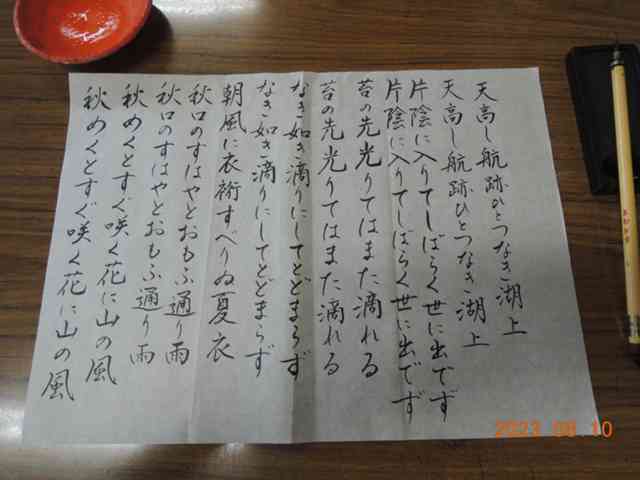 天高し航跡ひとつなき湖上
天高し航跡ひとつなき湖上
片陰に入りてしばらく世に出でず
片陰に入りてしばらく世に出でず
苔の先光りてはまた滴れる
苔の先光りてはまた滴れる
なき如き滴りにしてとどまらず
なき如き滴りにしてとどまらず
朝風に衣裄すべりぬ夏衣
秋口のすはやとおもふ通り雨
秋口のすはやとおもふ通り雨
秋めくとすぐ咲く花に山の風
秋めくとすぐ咲く花に山の風
2023 08 10